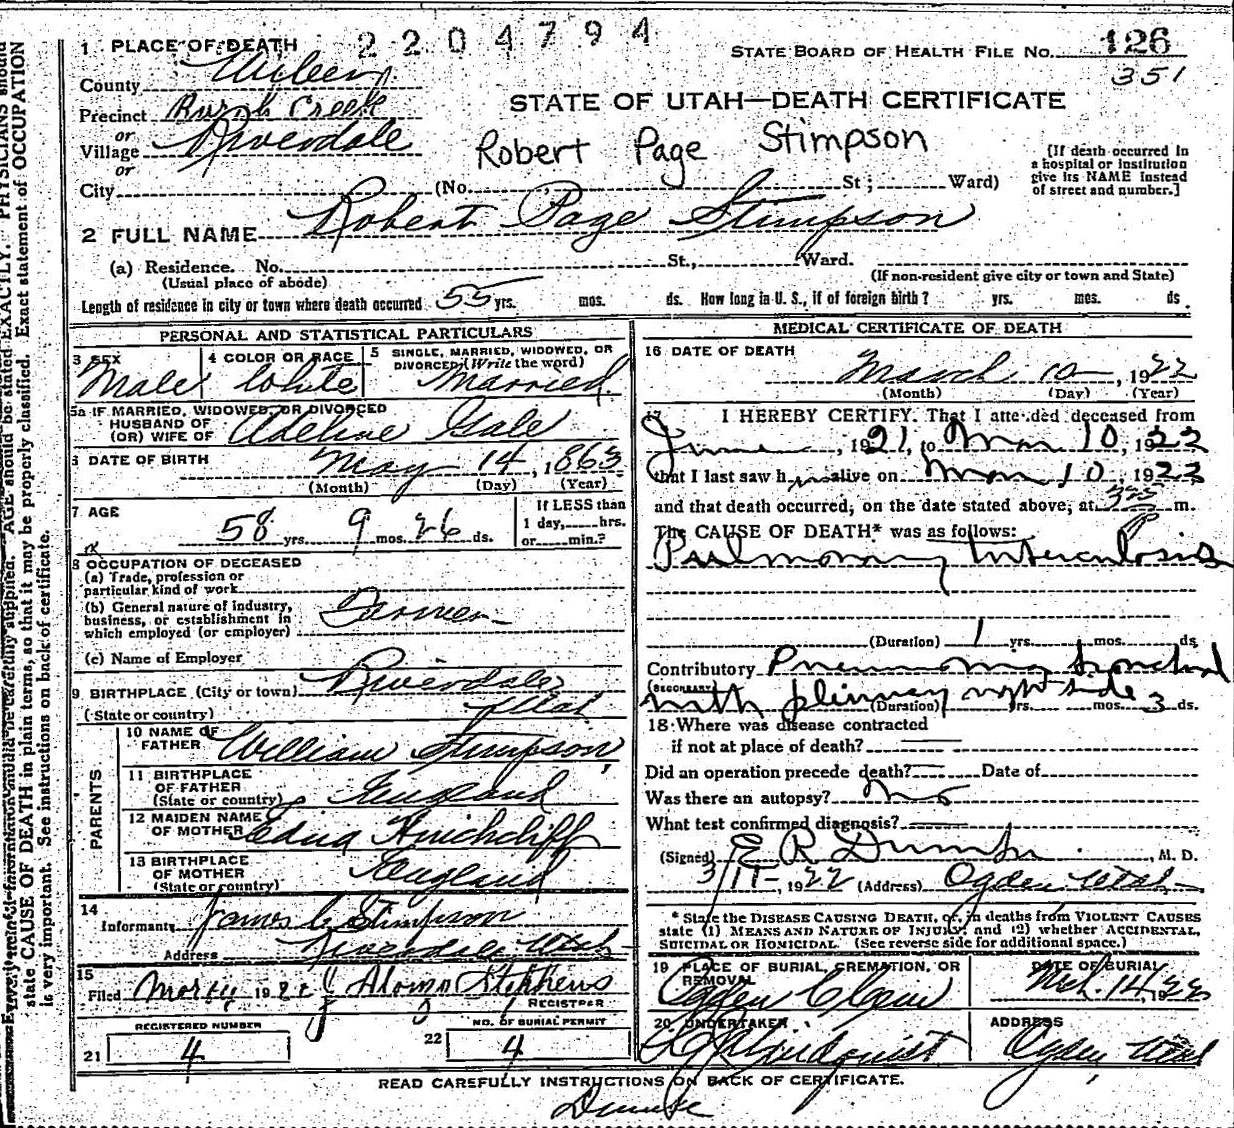 1 PLACE OF DEATH
2204794
STATE BOARD OF HEALTH FILE No. 126
351
County
STATE OF UTAH—DEATH CERTIFICATE
Precinct Burch Creek
or
Village Riverdale
or
Robert Page Stimpson
[If death occurred in a hospital or institution give its NAME instead of street and number.]
City (No. St; Ward)
2 FULL NAME Robert Page Stimpson
(a) Residence. No. St., Ward.
(Usual place of abode) (If non-resident give city or town and State)
Length of residence in city or town where death occurred 55 yrs. mos. ds. How long in U. S., if of foreign birth? yrs. mos. ds.
PERSONAL AND STATISTICAL PARTICULARS
3 SEX Male
4 COLOR OR RACE White
5 SINGLE, MARRIED, WIDOWED, OR DIVORCED (Write the word) Married
5a IF MARRIED, WIDOWED, OR DIVORCED
HUSBAND OF
(OR) WIFE OF Adeline Gale
6 DATE OF BIRTH May 14, 1863
(Month) (Day) (Year)
7 AGE 58 yrs. 9 mos. 26 ds.
If LESS than
1 day, hrs.
or min.?
8 OCCUPATION OF DECEASED
(a) Trade, profession or
particular kind of work
(b) General nature of industry,
business, or establishment in
which employed (or employer) Farmer
(c) Name of Employer
9 BIRTHPLACE (City or town) Riverdale
(State or country) Utah
PARENTS
10 NAME OF
FATHER William Stimpson
11 BIRTHPLACE
OF FATHER
(State or country) England
12 MAIDEN NAME
OF MOTHER Edna Hinchcliff
13 BIRTHPLACE
OF MOTHER
(State or country) England
14
Informant James C Stimpson
Address Riverdale Utah
15
Filed 192 Stephens
REGISTRAR
REGISTERED NUMBER
21 4
NO. OF BURIAL PERMIT
22 4
MEDICAL CERTIFICATE OF DEATH
16 DATE OF DEATH
March 10, 1922
(Month) (Day) (Year)
17 I HEREBY CERTIFY. That I attended deceased from
June, 1921, to Mar 10, 1922
that I last saw him alive on Mar 10 1922
and that death occurred, on the date stated above, at 325 P m.
The CAUSE OF DEATH* was as follows:
Pulmonary tuberculosis
(Duration) 1 yrs. mos. ds.
Contributory Pneumonia bronchial
(SECONDARY) with pleurisy right side
(Duration) yrs. mos. 3 ds.
18 Where was disease contracted
if not at place of death?
Did an operation precede death? Date of
Was there an autopsy? no
What test confirmed diagnosis?
(Signed) E R Dumke, M. D.
3/11, 1922 (Address) Ogden Utah
* State the DISEASE CAUSING DEATH, or, in deaths from VIOLENT CAUSES
state (1) MEANS AND NATURE OF INJURY; and (2) whether ACCIDENTAL,
SUICIDAL OR HOMICIDAL. (See reverse side for additional space.)
19 PLACE OF BURIAL, CREMATION, OR
REMOVAL
Ogden
DATE OF BURIAL
Mch. 14, 1922
20 UNDERTAKER
Lindquist
ADDRESS
Ogden, Utah
READ CAREFULLY INSTRUCTIONS ON BACK OF CERTIFICATE.
Dumke
AGE should be stated EXACTLY. PHYSICIANS should
state CAUSE OF DEATH in plain terms, so that it may be properly classified. Exact statement of OCCUPATION
is very important. See instructions on back of certificate.